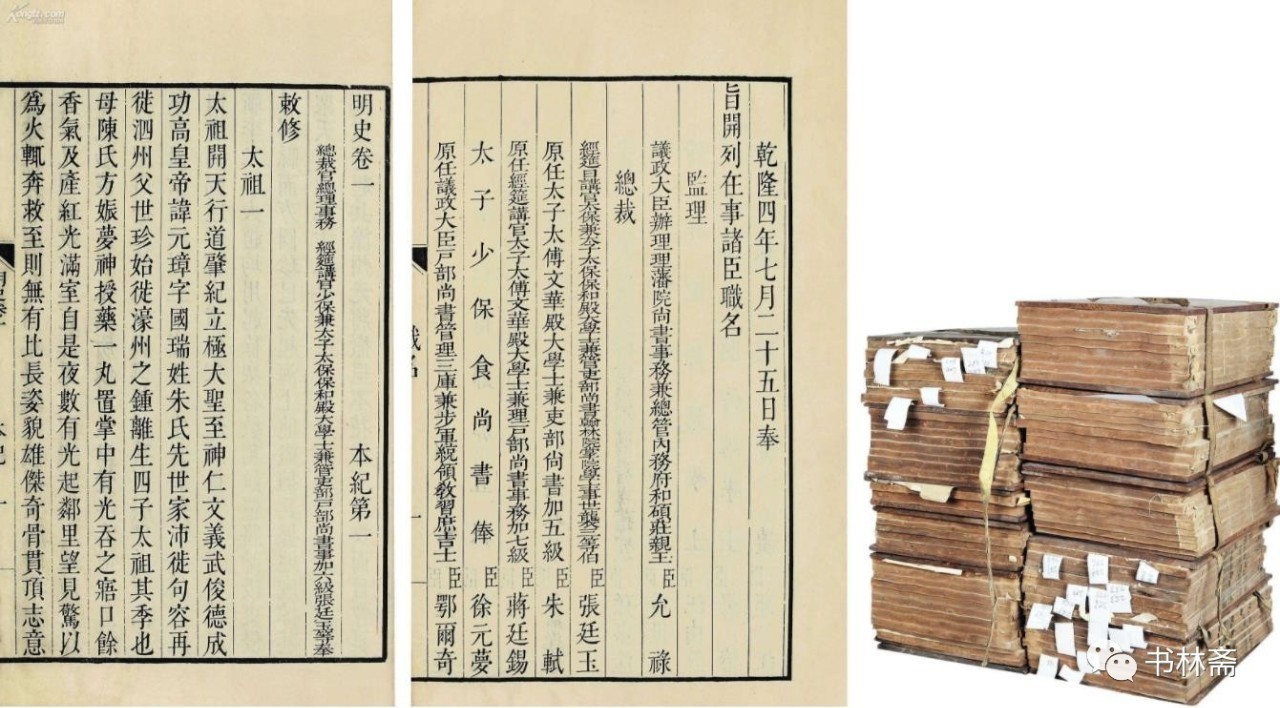 明史卷一　本紀第一
總裁官總理事務　經筵講官少保兼太子太保保和殿大學士兼管吏部戶部尚書事加六級張廷玉等奉
敕修
太祖一
太祖開天行道肇紀立極大聖至神仁文義武俊德成
功高皇帝諱元璋字國瑞姓朱氏先世家沛徙句容再
徙泗州父世珍始徙濠州之鍾離生四子太祖其季也
母陳氏方娠夢神授藥一丸置掌中有光吞之寤口餘
香氣及產紅光滿室自是夜數有光起鄰里望見驚以
爲火輒奔救至則無有比長姿貌雄傑奇骨貫頂志意
本紀一
乾隆四年七月二十五日奉
旨開列在事諸臣職名
監理
議政大臣辦理理藩院尚書事務兼總管內務府和碩莊親王臣允祿
總裁
經筵日講官太保兼太子太保保和殿大學士兼管吏部尚書翰林院掌院學士事世襲三等伯臣張廷玉
原任太子太傅文華殿大學士兼吏部尚書加五級臣朱軾
原任經筵講官太子太傅文華殿大學士兼理戶部尚書事務加七級臣蔣廷錫
太子少保食尚書俸臣徐元夢
原任議政大臣戶部尚書管理三庫兼步軍統領教習庶吉士臣鄂爾奇
職名
一
书林斋